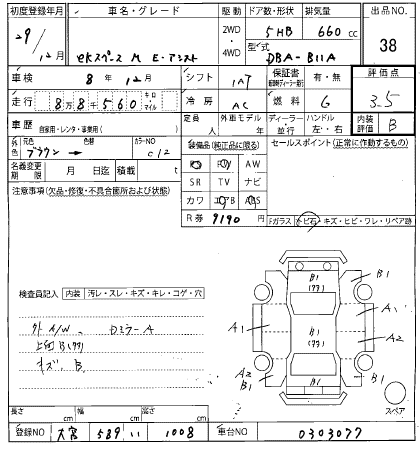 初度登録年月 車名・グレード 駆動 ドア数・形状 排気量 出品NO
29/12月 ekスペース M E-アシスト 2WD・4WD 5HB 660cc 38
型式 DBA-B11A
車検 8年12月 シフト IAT 保証書 有・無 評価点
走行 88560 キロ マイル 冷房 AC 燃料 G 3.5
車歴 自家用・レンタ・事業用( ) 定員 人 外車モデル 年 ディーラー・並行 ハンドル 左・右 内装評価 B
外色 元色 ブラウン → 色替 カラーNO C12 装備品(純正品に限る) セールスポイント(正常に作動するもの)
名義変更期限 月 日迄 積載 t PS PW AW
注意事項(欠品・修復・不具合箇所および状態) SR TV ナビ
カワ エアB ABS
R券 9190円 Fガラス・トビ石・キズ・ヒビ・ワレ・リペア跡
検査員記入 内装 汚レ・スレ・キズ・キレ・コゲ・穴
外 A/W Dミラ-A
キズ、B
B1 B1
A1 B1 A1
A2
A2 B1 B1 B1
スペア
長さ cm 幅 cm 高さ cm
登録NO 大宮 589 い 1008 車台NO 0303077